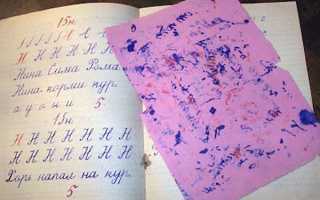 15н.
Н Н Н Н Н Н
Нина Сима Рома
Нина корми кур
а у о ы и 5
15н.
Н Н Н Н Н Н Н
Н Н Н Н Н Н Н
Хорь напал на кур
5